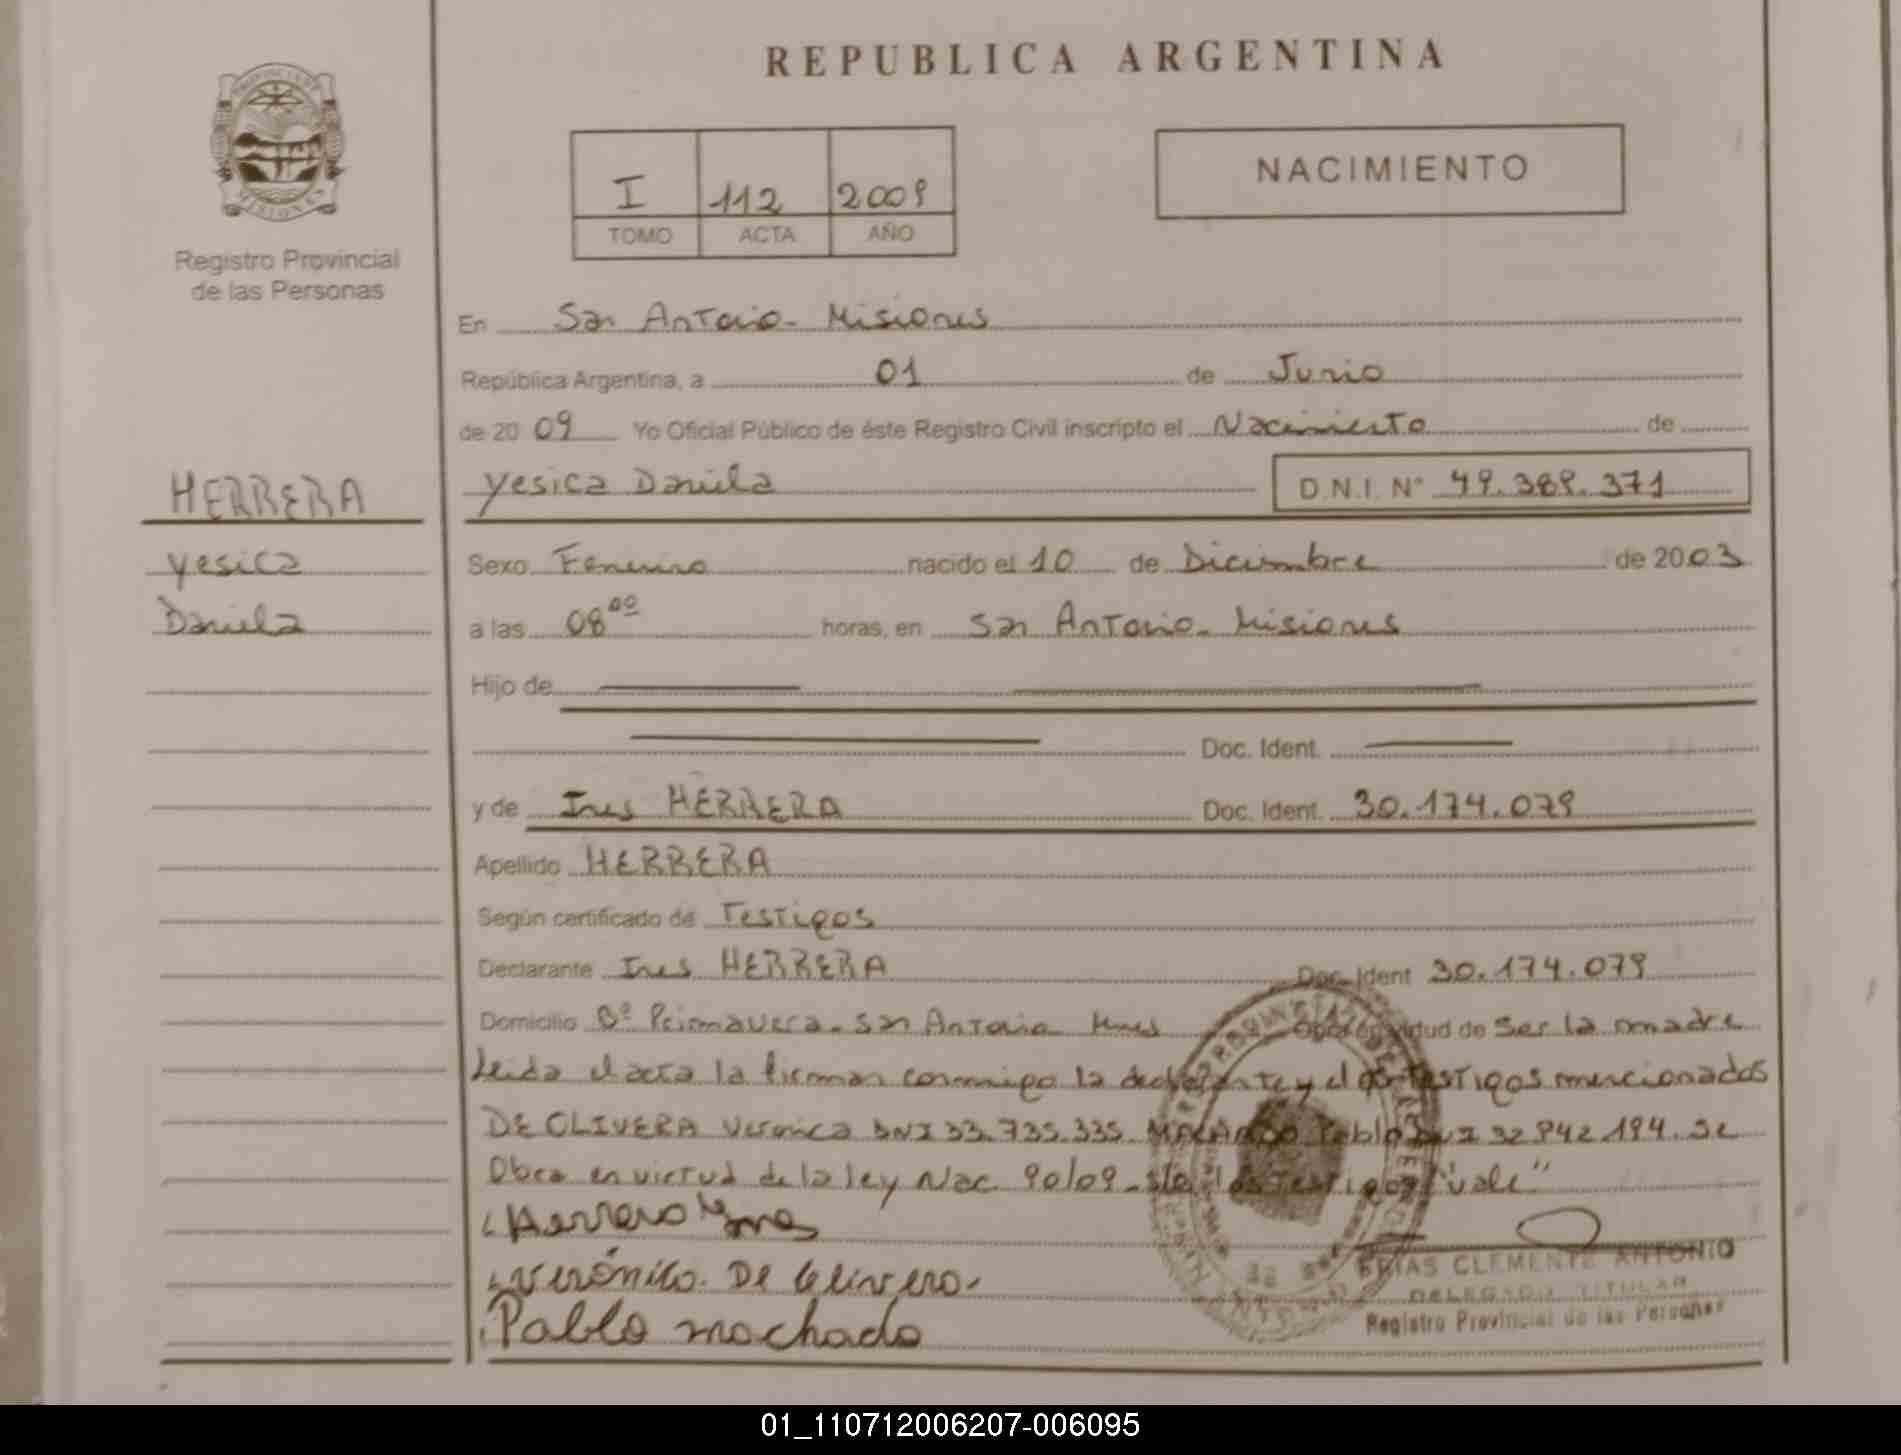 REPUBLICA ARGENTINA
I 112 2009
TOMO ACTA AÑO
NACIMIENTO
MISIONES
Registro Provincial
de las Personas
En San Antonio - Misiones
República Argentina, a 01 de Junio
de 20 09 Yo Oficial Público de éste Registro Civil inscripto el Nacimiento de
HERRERA
Yesica Daniela D.N.I. N° 49.389.371
Yesica
Daniela
Sexo Femenino nacido el 10 de Diciembre de 20 03
a las 08 00 horas, en San Antonio - Misiones
Hijo de
Doc. Ident.
y de Ines HERRERA Doc. Ident. 30.174.079
Apellido HERRERA
Según certificado de Testigos
Declarante Ines HERRERA Doc. Ident 30.174.079
Domicilio Bº Primavera - San Antonio Mnes Obra en virtud de Ser la madre
Leida el acta la firman conmigo la declarante y el testigos mencionados
DE OLIVERA Veronica DNI 33.735.335 MACHADO Pablo DNI 32 942 194. Se
Obra en virtud de la ley Nac. 90/09 - s/r los testigos "vale"
Herrera Ynes
Verónica. De Olivera.
Pablo machado
FRIAS CLEMENTE ANTONIO
DELEGADO TITULAR
Registro Provincial de las Personas
01_110712006207-006095